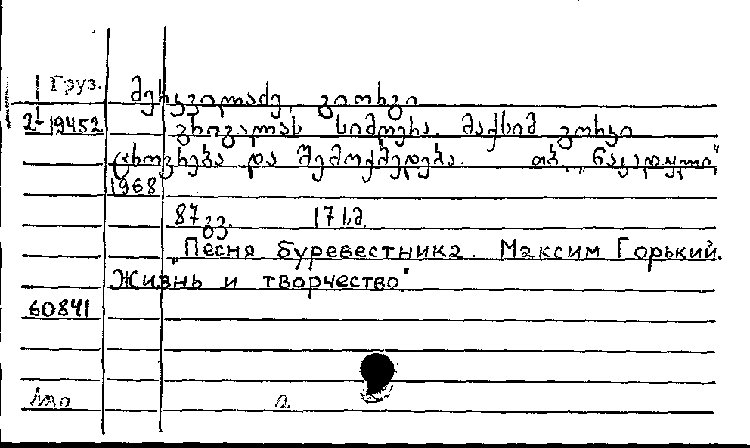 Груз. მერკვილაძე, გიორგი
2-19452 გრიგალის სიმღერა. მაქსიმ გორკი
ცხოვრება და შემოქმედება. თბ. „ნაკადული"
1968
87 გვ. 17 სმ.
„Песня буревестника. Максим Горький.
Жизнь и творчество"
60841